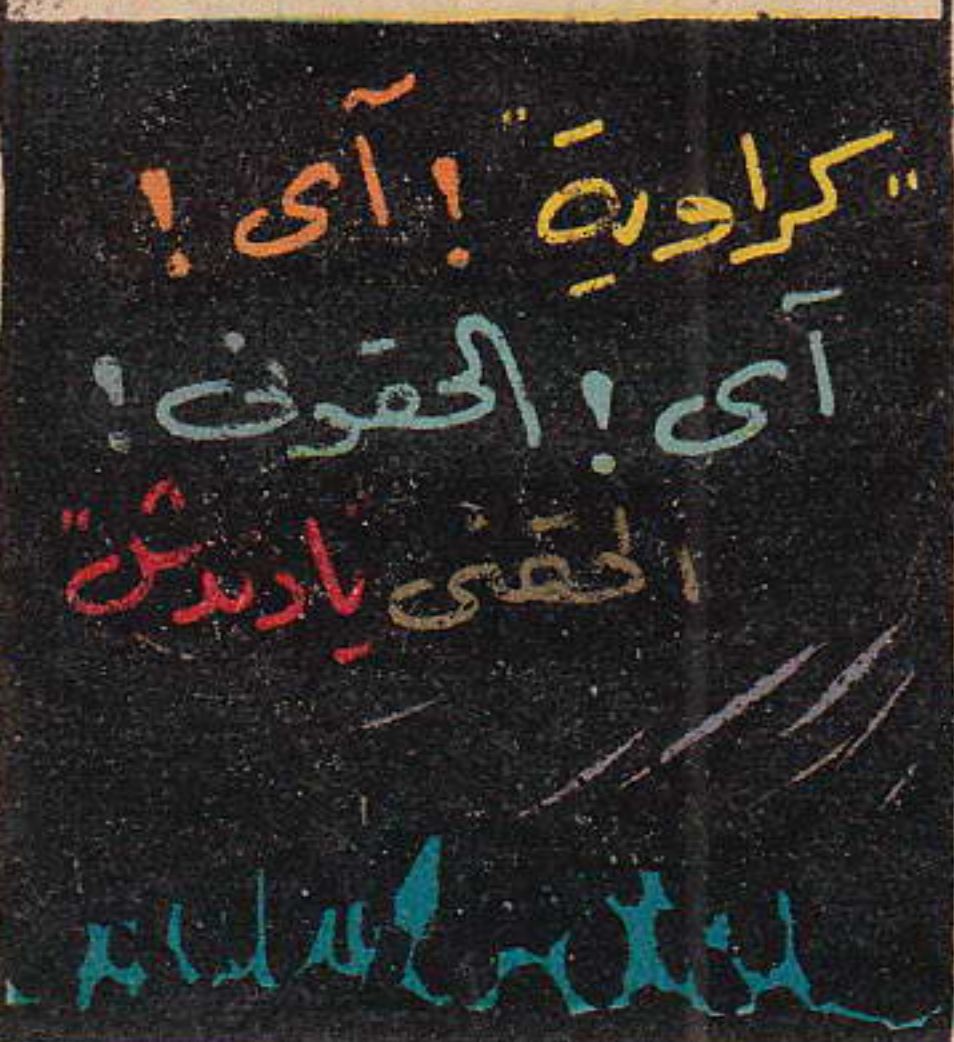 "كراوية" ! آى !
آى ! الحقونى !
الحقنى "يا دندش"